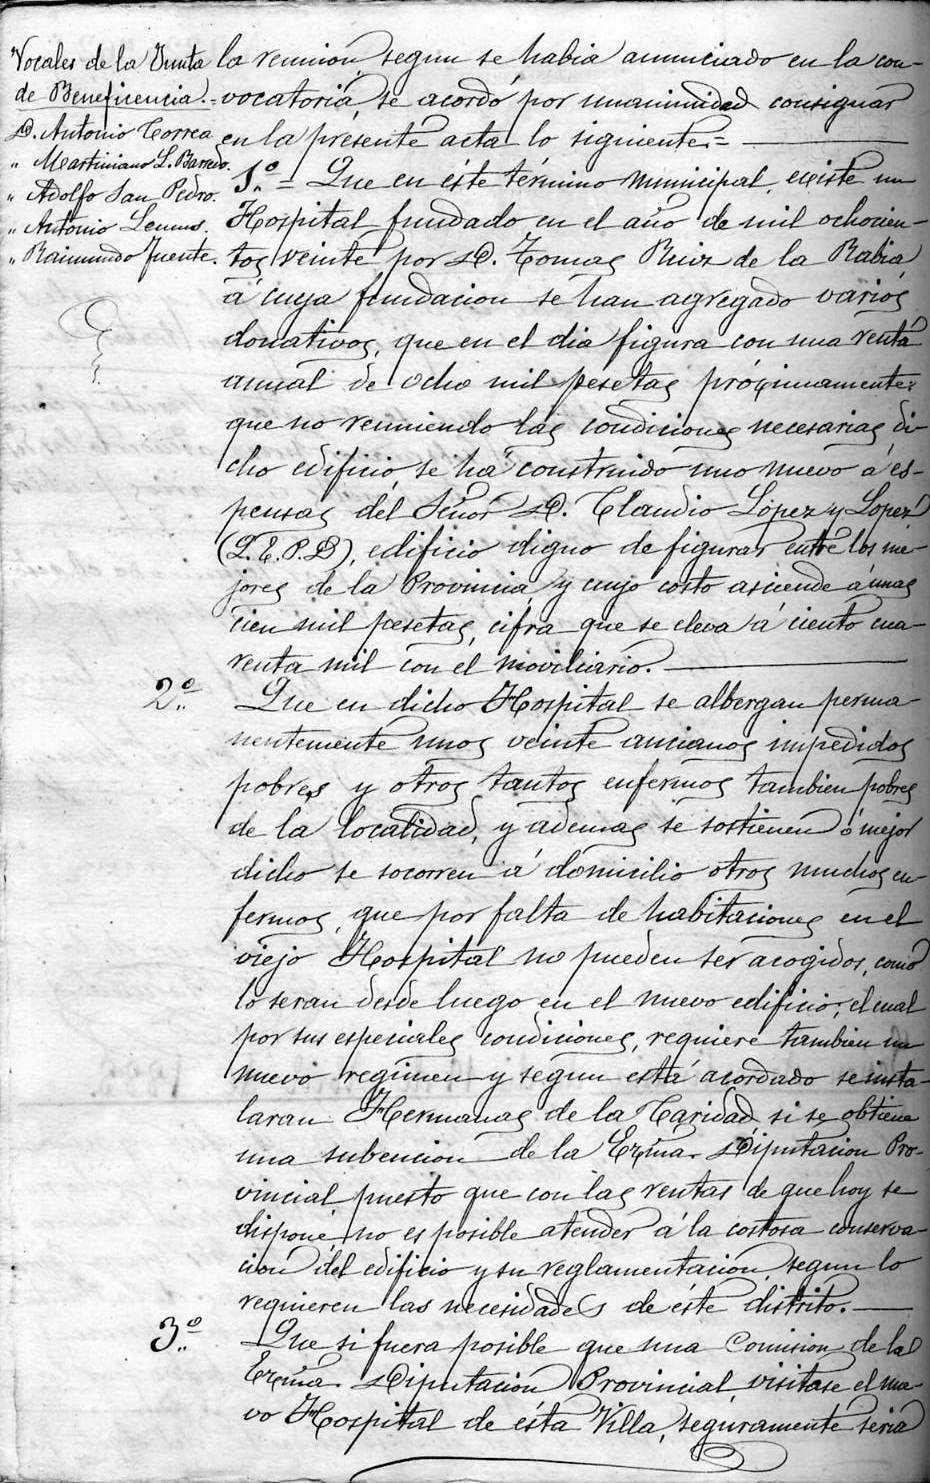 Vocales de la Junta
de Beneficencia.=
D. Antonio Correa
" Martiniano L. Barredo.
" Adolfo San Pedro.
" Antonio Lemus.
" Raimundo Fuente.
la reunion, segun se habia anunciado en la con-
vocatoria se acordó por unanimidad consignar
en la presente acta lo siguiente=
1.º = Que en éste término municipal, existe un
Hospital fundado en el año de mil ochocien-
tos veinte por D. Tomas Ruiz de la Rabia
á cuya fundacion se han agregado varios
donativos, que en el dia figura con una renta
anual de ocho mil pesetas próximamente:
que no reuniendo las condiciones necesarias di-
cho edificio se há construido uno nuevo á es-
pensas del Señor D. Claudio López y López
(Q.E.P.D), edificio digno de figurar entre los me-
jores de la Provincia y cuyo costo asciende á unas
cien mil pesetas, cifra que se eleva á ciento cua-
renta mil con el moviliario.
2.º Que en dicho Hospital se albergan perma-
nentemente unos veinte ancianos impedidos
pobres y otros tantos enfermos tambien pobres
de la localidad, y ademas se sostienen ó mejor
dicho se socorren á domicilio otros muchos en-
fermos, que por falta de habitaciones en el
viejo Hospital no pueden ser acogidos, como
lo seran desde luego en el nuevo edificio; el cual
por sus especiales condiciones, requiere tambien un
nuevo regimen y segun está acordado se insta-
laran Hermanas de la Caridad si se obtiene
una subencion de la Exma. Diputacion Pro-
vincial, puesto que con las rentas de que hoy se
dispone, no es posible atender á la costosa conserva-
cion del edificio y su reglamentacion, segun lo
requieren las necesidades de éste distrito.
3.º Que si fuera posible que una Comision de la
Exma. Diputacion Provincial, visitase el nue-
vo Hospital de ésta Villa, seguramente seria